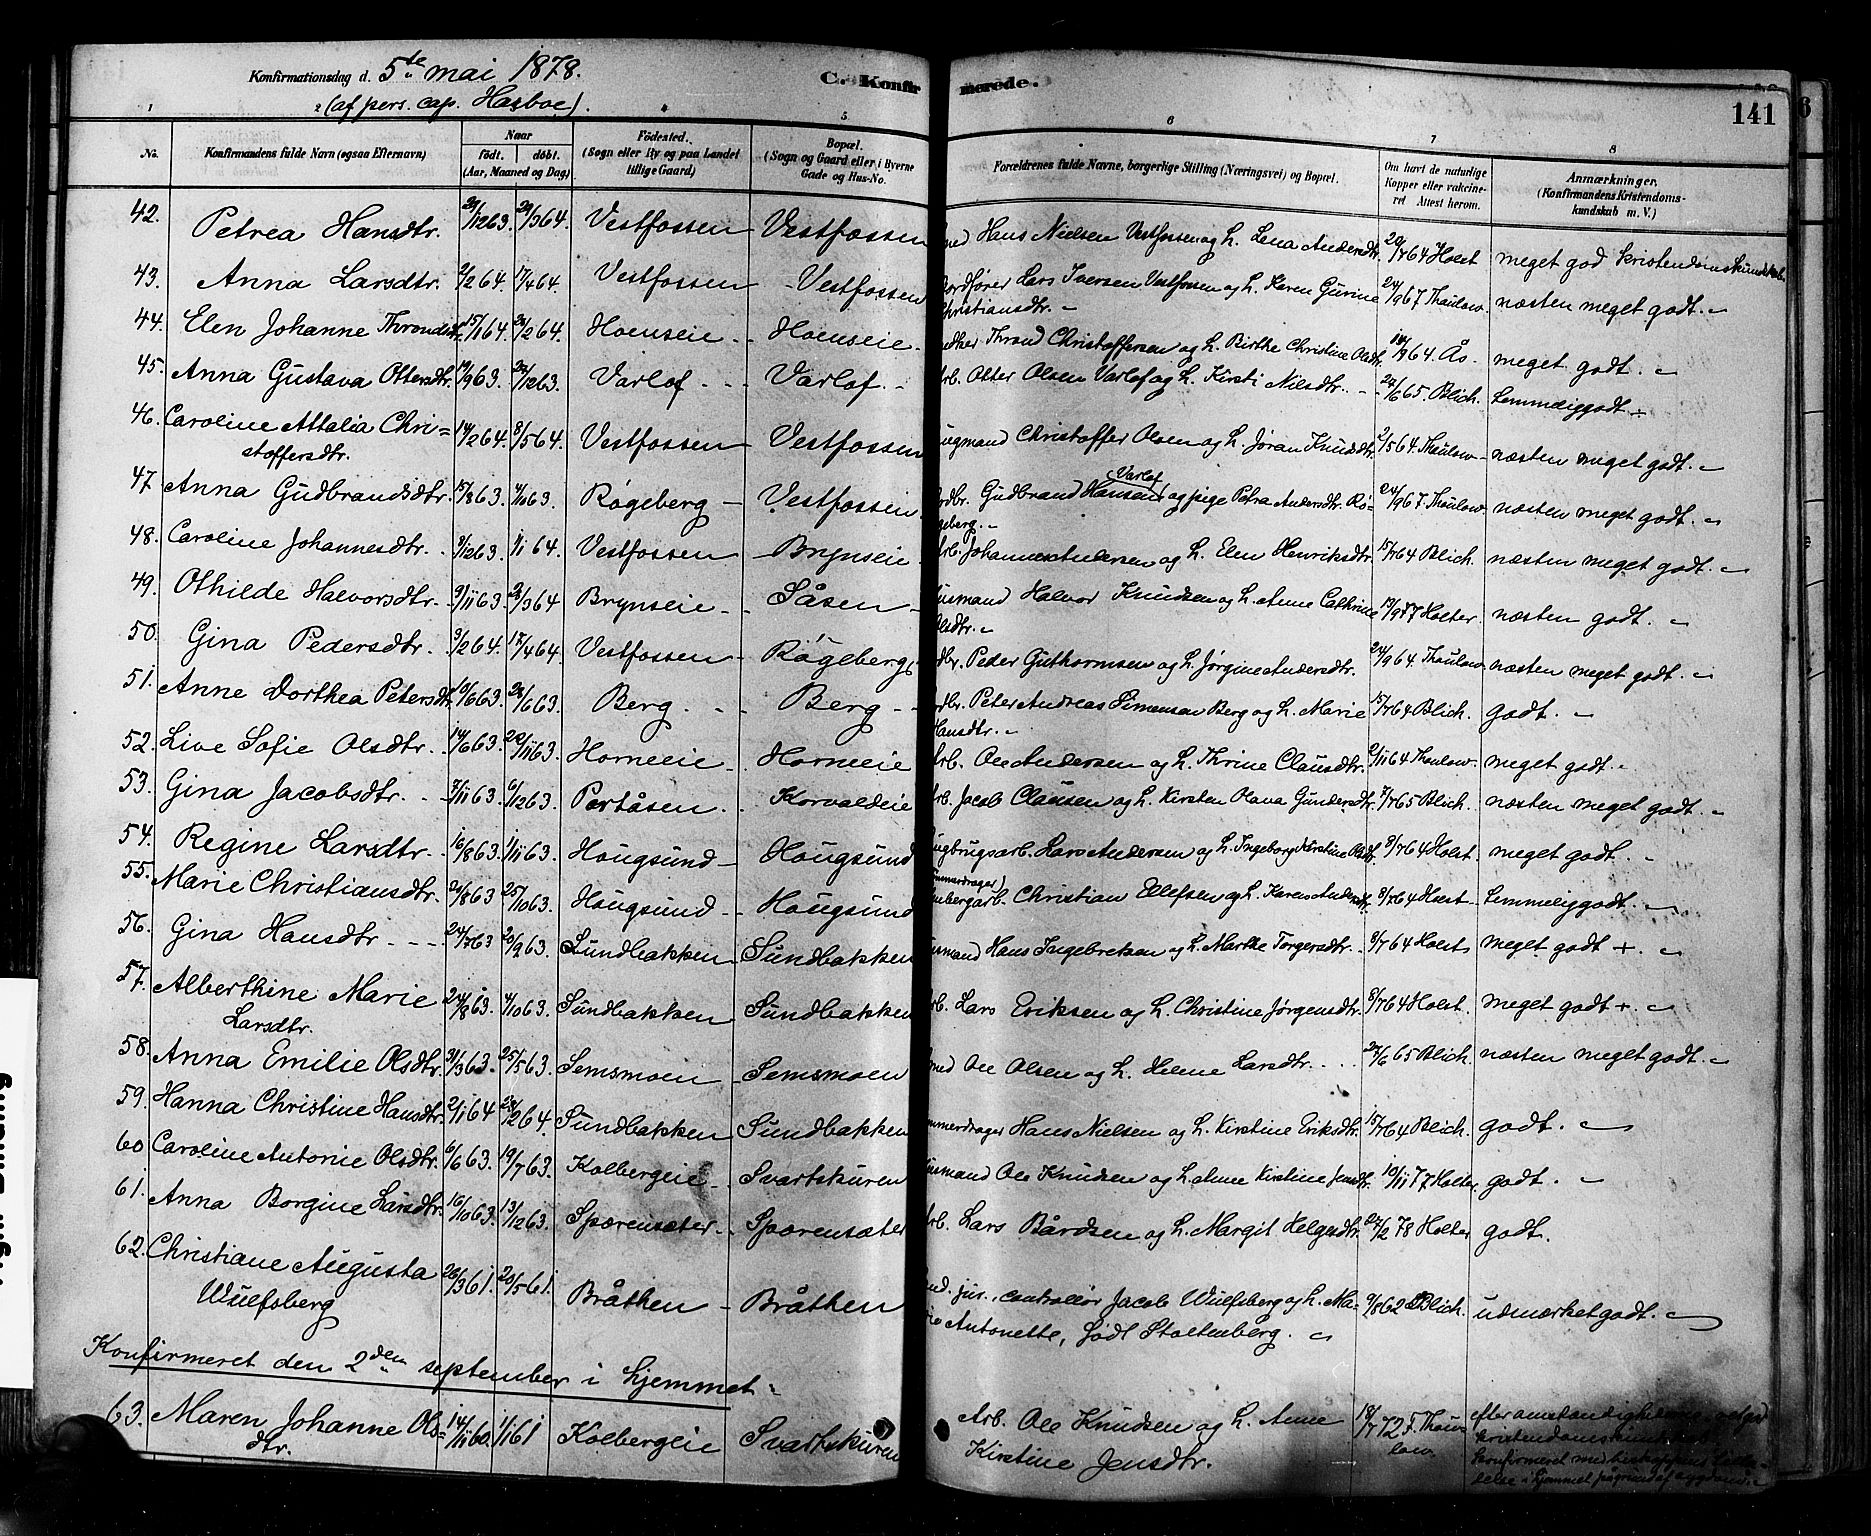 Konfirmationsdag d. 5te mai 1878.
C. Konfirmerede.
141
(af pers. cap. Hasboe).
1 2 4 5 6 7 8
No. Konfirmandens fulde Navn (ogsaa Efternavn) Naar født. døbt. (Aar, Maaned og Dag) Fødested. (Sogn eller By og paa Landet tillige Gaard) Bopæl. (Sogn og Gaard eller i Byerne Gade og Hus-No. Forældrenes fulde Navne, borgerlige Stilling (Næringsvei) og Bopæl. Om havt de naturlige Kopper eller vaccineret Attest herom. Anmærkninger. (Konfirmandens Kristendomskundskab m. V.)
42. Petrea Hansdtr. /1263. /364. Vestfossen Vestfossen Hans Nielsen Vestfossen og h. Lena Andersdtr. 20/764 Holst meget god kristendomskundskab
43. Anna Larsdtr. 2/264. 17/464. Vestfossen - Vestfossen Lars Iversen Vestfossen og h. Karen Gurine 24/967 Thaulow næsten meget godt. 〃
Christiansdtr. 〃
44. Elen Johanne Throndsdtr. 15/164. 28/264. Hoenseie Hoenseie. Thrond Christoffersen og h. Birthe Christine Olsdtr. /964. Ås meget godt. 〃
45. Anna Gustava Ottersdtr. 17/963. /1263. Varlof Varlof Arb. Otter Olsen Varlof og h. Kirsti Nilsdtr. 24/665. Blich. Temmeliggodt
46. Caroline Attalia Chri=
stoffersdtr. 14/264. 8/564. Vestfossen Vestfossen Christoffer Olsen og h. Jøran Knudsdtr. 2/564. Thaulow næsten meget godt. 〃
47. Anna Gudbrandsdtr. 15/863. 4/1063. Røgeberg - Vestfossen Gudbrand Hansen Varlof og pige Petra Andersdtr. Rø- 24/967 Thaulow næsten meget godt. 〃
geberg. 〃
48. Caroline Johannesdtr. 9/1263. 1/164. Vestfossen Brynseie Arb. Johannes Andersen og h. Elen Henriksdtr. 15/764 Blich. næsten meget godt. 〃
49. Othilde Halvorsdtr. 9/1163. 28/364 Brynseie Såsen Husmand Halvor Knudsen og h. Anne Cathrine 19/977 Holter. næsten godt. 〃
Olsdtr. 〃
50. Gina Pedersdtr. 9/264. 17/464. Vestfossen Røgeberg Peder Guthormsen og h. Jørgine Andersdtr. 24/964. Thaulow næsten meget godt. 〃
51. Anne Dorthea Petersdtr. 10/663. 28/663. Berg. Berg Peter Andreas Simensen Berg og h. Marie 15/764 Blich. godt. 〃
Hansdtr. 〃
52. Live Sofie Olsdtr. 14/663. 22/1163. Horneeie Horneeie Arb. Ole Andersen og h. Thrine Clausdtr. 2/1164 Thaulow. meget godt. 〃
53. Gina Jacobsdtr. 7/1163. 6/1263. Portåsen. Korvaldeie Arb. Jacob Clausen og h. Kirsten Olava Gundersdtr. 7/765 Blich. næsten meget godt. 〃
54. Regine Larsdtr. 16/863. 1/1163. Hougsund Hougsund Lars Andersen og h. Ingeborg Kirstine Olsdtr. 8/764 Holst. meget godt. 〃
55. Marie Christiansdtr. 21/863 25/1063. Hougsund Hougsund Christian Ellefsen og h. Karen Andersdtr. 8/764 Holst Temmeliggodt. 〃
56. Gina Hansdtr 24/763 20/963. Sundbakken Sundbakken Husmand Hans Ingebretsen og h. Marthe Torgersdtr. 8/764 Holst meget godt +. 〃
57. Alberthine Marie
Larsdtr. 24/863. 4/1063. Sundbakken Sundbakken Arb. Lars Eriksen og h. Christine Jørgensdtr. 8/764 Holst. meget godt +. 〃
58. Anna Emilie Olsdtr. 31/363. 25/563. Semsmoen Semsmoen Ole Olsen og h. Helene Larsdtr. 24/665 Blich. næsten meget godt. 〃
59. Hanna Christine Hansdtr. 2/164 28/264. Sundbakken Sundbakken Tømmerdrager Hans Nielsen og h. Kirstine Eriksdtr. 15/764 Blich. godt. 〃
60. Caroline Antonie Olsdtr. 6/663. 19/763. Kolbergeie Svartskuren Husmand Ole Knudsen og h. Anne Kirstine Jensdtr. 10/1177 Holter. godt. 〃
61. Anna Borgine Larsdtr. 16/1063. 13/1263. Spærensæter. Spærensæter Arb. Lars Bårdsen og h. Margit Helgesdtr. 27/278 Holter godt.
62. Christiane Augusta
Wulfsberg 28/361. 20/561. Bråthen Bråthen Cand. jur., controllør Jacob Wulfsberg og h. Ma- 9/862 Blich. udmærketgodt. 〃
rie Antonette, født Stoltenberg. 〃
Konfirmeret den 2den september i hjemmet
63. Maren Johanne Ols=
dtr. 14/1160. 1/161 Kolbergeie Svartskuren Arb. Ole Knudsen og h. Anne 18/772 F. Thau- efter omstændighederne
Kirstine Jensdtr. low. kristendomskundskab
konfirmeret med biskoppens tilla-
delse i hjemmet på grund af sygdom.